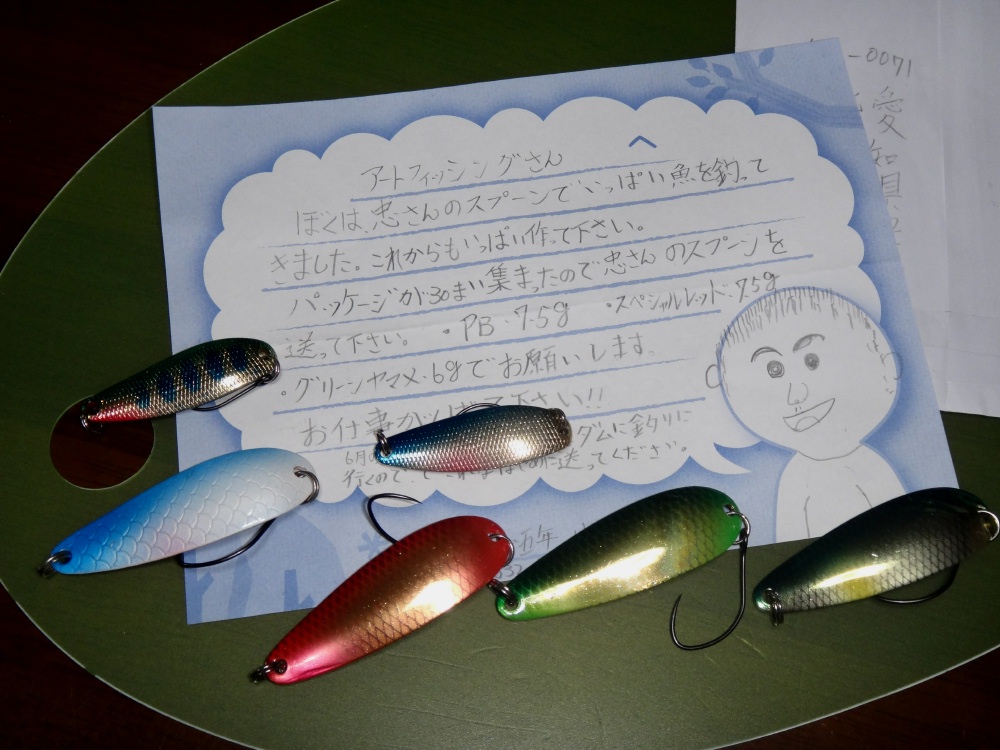 アートフィッシングさん
ぼくは、忠さんのスプーンでいっぱい魚を釣って
きました。これからもいっぱい作って下さい。
パッケージが30まい集まったので忠さんのスプーンを
送って下さい。 ・PB・7.5g ・スペシャルレッド・7.5g
・グリーンヤマメ・6gでお願いします。
お仕事がんばって下さい!!
6月 ダムに釣りに
行くので、 に送ってください。
五年
-0071
愛知県